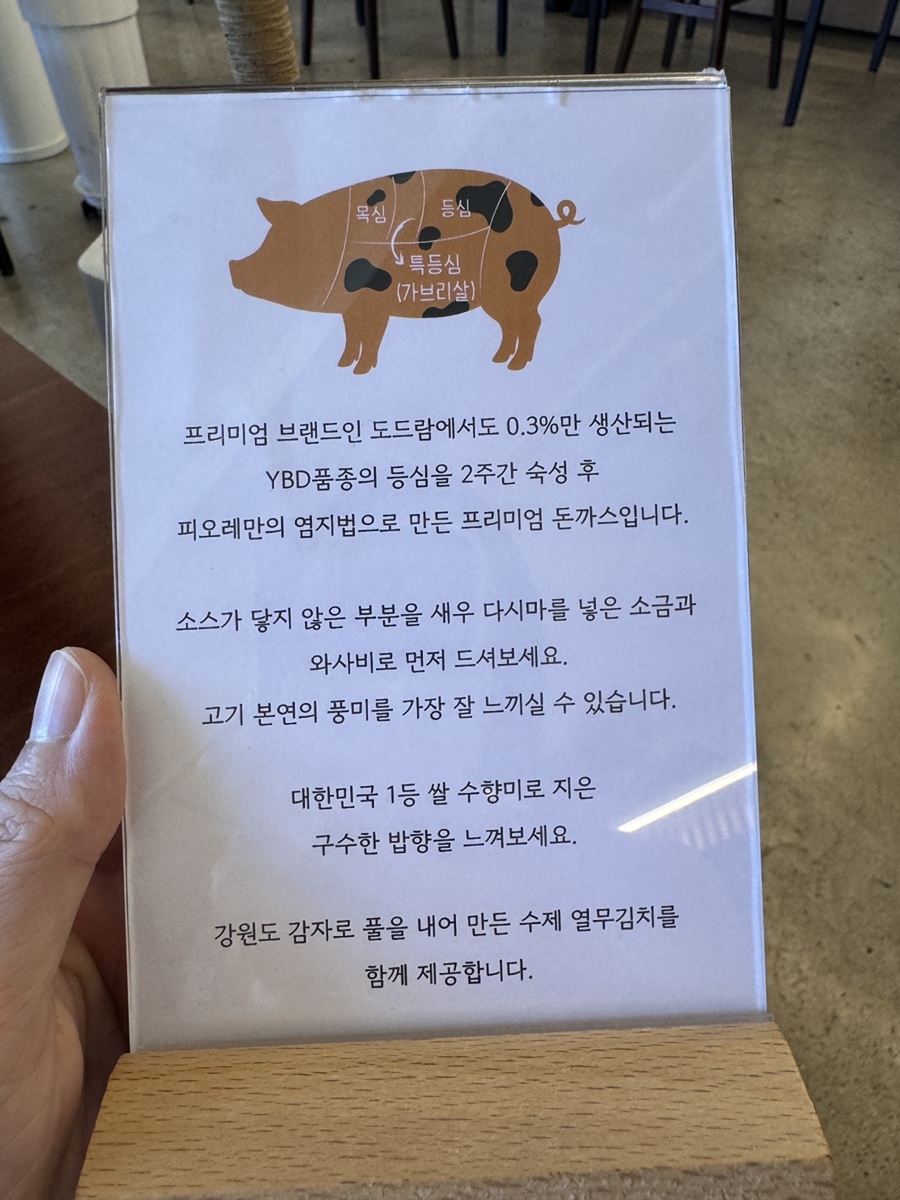 목심
등심
특등심
(가브리살)
프리미엄 브랜드인 도드람에서도 0.3%만 생산되는
YBD품종의 등심을 2주간 숙성 후
피오레만의 염지법으로 만든 프리미엄 돈까스입니다.
소스가 닿지 않은 부분을 새우 다시마를 넣은 소금과
와사비로 먼저 드셔보세요.
고기 본연의 풍미를 가장 잘 느끼실 수 있습니다.
대한민국 1등 쌀 수향미로 지은
구수한 밥향을 느껴보세요.
강원도 감자로 풀을 내어 만든 수제 열무김치를
함께 제공합니다.